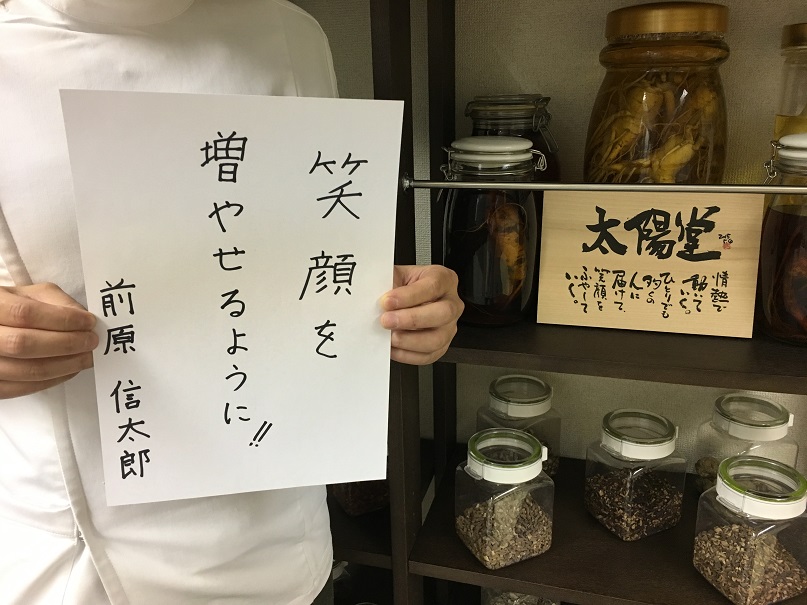 笑顔を
増やせるように!!
前原 信太郎
太陽堂
情熱で
動いて
いく。
ひとりでも
多くの
人に
届けて、
笑顔を
ふやして
いく。